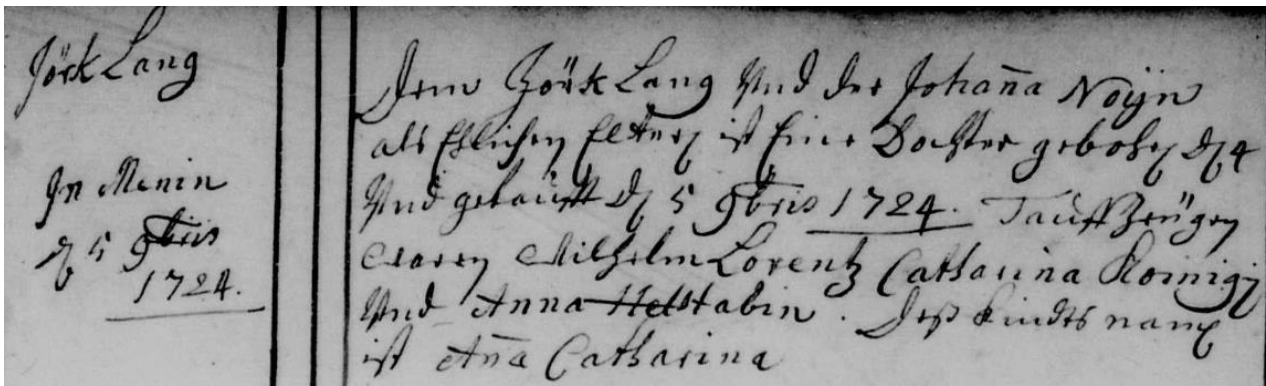 Jörk Lang
In Menin
dῃ 5 9bris
1724.
Dem Jörk Lang Und der Johan̄a Noÿn
als Ehlichen Eltern ist Eine Dochter gebohrn dῃ 4
Und getaufft dῃ 5 9bris 1724. Tauffzeügen
waren Wilhelm Lorentz Catharina
Und Anna . Deß Kindts namen
ist An̄a Catharina